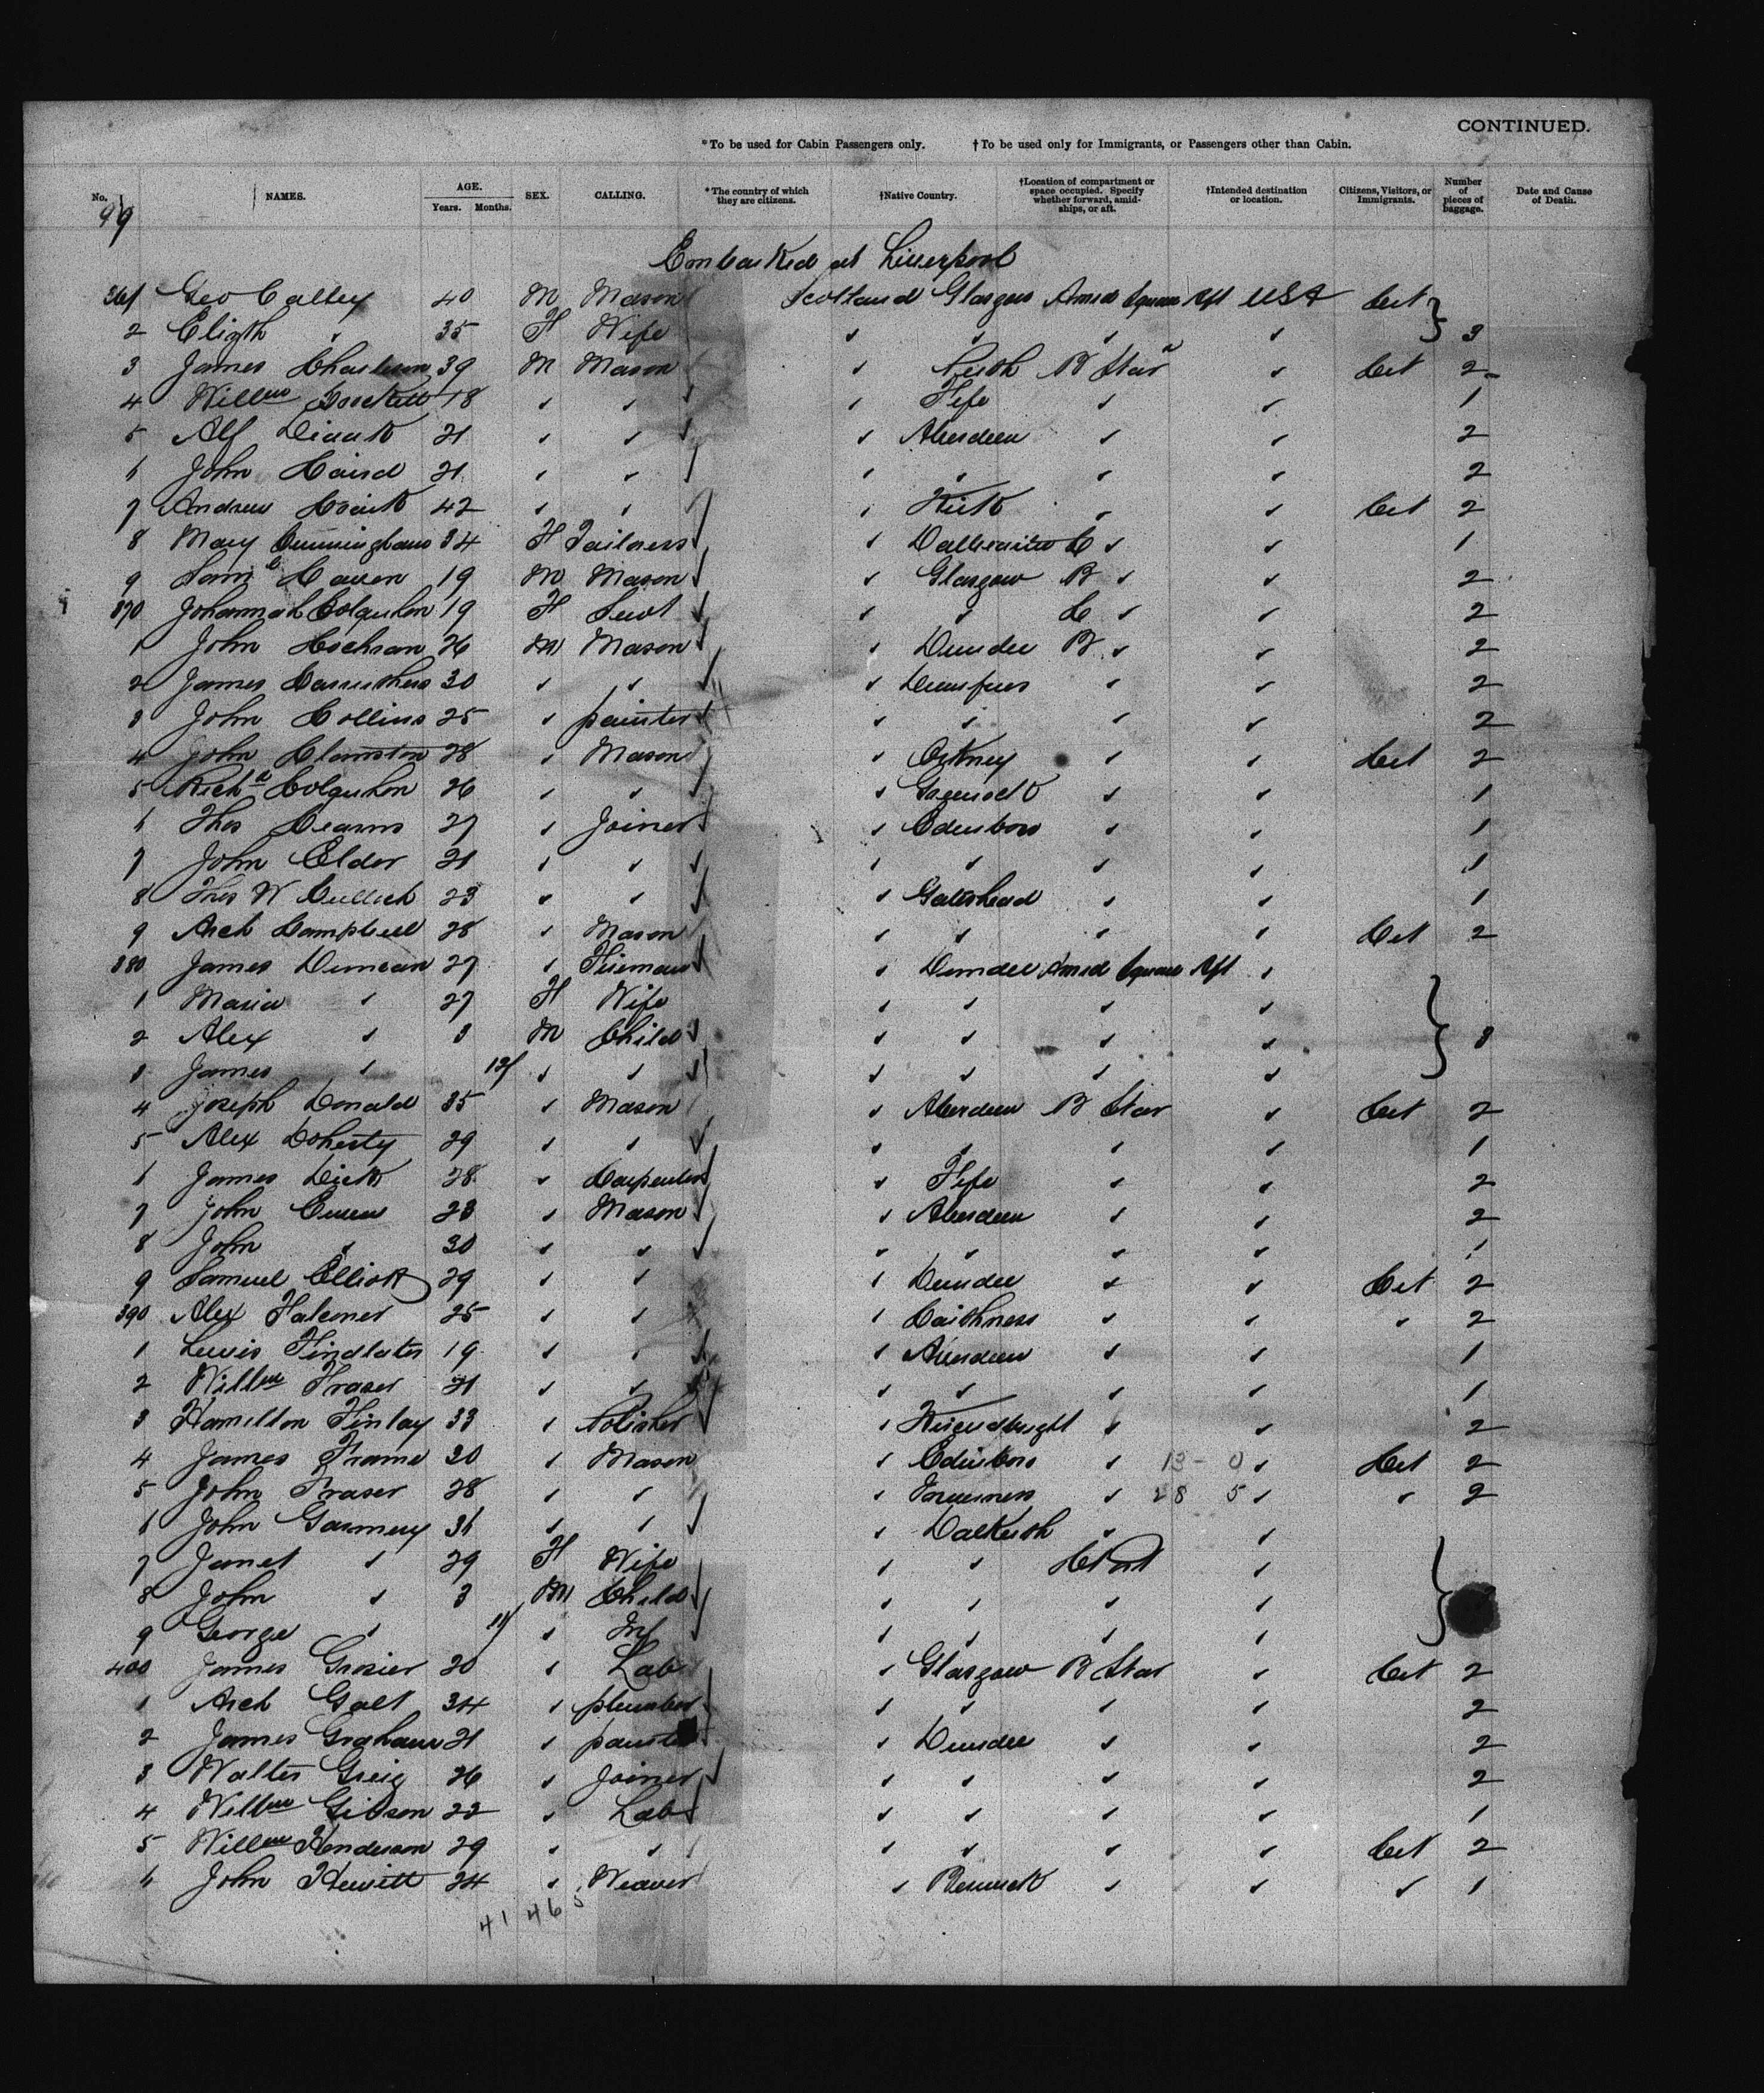 CONTINUED.
*To be used for Cabin Passengers only. †To be used only for Immigrants, or Passengers other than Cabin.
No. NAMES. AGE. Years. Months. SEX. CALLING. *The country of which they are citizens. †Native Country. †Location of compartment or space occupied. Specify whether forward, amidships, or aft. †Intended destination or location. Citizens, Visitors, or Immigrants. Number of pieces of baggage. Date and Cause of Death.
99
Embarked at Liverpool
361 Geo Calley 40 M Mason Scotland Glasgow Amid Square Aft USA Cit
2 Elizth " 35 F Wife " " " " 3
3 James 39 M Mason " Leith B Star " Cit 2
4 Willm 18 " " " Fife " " 1
5 Alf 21 " " " Aberdeen " " 2
6 John Caird 21 " " " " " " 2
7 Andrew 42 " " " " " Cit 2
8 Mary Cunningham 34 F Tailoress " C " " 1
9 Saml 19 M Mason " Glasgow B " " 2
370 Johannah Colquhon 19 F Servt " " C " " 2
1 John Cochran 26 M Mason " Dundee B " " 2
2 James Carruthers 30 " " " Dumfries " " 2
3 John Collins 25 " painter " " " " 2
4 John Clouston 28 " Mason " Orkney " " Cit 2
5 Richd Colquhon 26 " " " Greenock " " 1
6 Thos 27 " Joiner " Edinboro " " 1
7 John Elder 21 " " " " " " 1
8 Thos W 23 " " " Gateshead " " 1
9 Arch Campbell 28 " Mason " " " " Cit 2
380 James Duncan 27 " Fireman " Dundee Amid Square Aft "
1 Maria " 27 F Wife " " " "
2 Alex " 3 M Child " " " " 3
3 James " " " " " " "
4 Joseph Donald 35 " Mason " Aberdeen B Star " Cit 2
5 Alex Doherty 29 " " " " " " 1
6 James Dick 28 " Carpenter " Fife " " 2
7 John 23 " Mason " Aberdeen " " 2
8 John " 30 " " " " " " 1
9 Samuel Elliott 29 " " " Dundee " " Cit 2
390 Alex Falconer 25 " " " Caithness " " " 2
1 Lewis Findlater 19 " " " Aberdeen " " 1
2 Willm Fraser 21 " " " " " " 1
3 Hamilton Finlay 33 " Polisher " " " 2
4 James Frame 30 " Mason " Edinboro " 13 - 0 " Cit 2
5 John Fraser 28 " " " Inverness " 28 5 " " 2
6 John 36 " " " Dalkeith " "
7 Janet " 29 F Wife " " "
8 John " 3 M Child " " " "
9 George " 11 " Inf " " " "
400 James Grosier 20 " Lab " Glasgow B Star " Cit 2
1 Arch Galt 34 " plumber " " " " 2
2 James Graham 21 " painter " Dundee " " 2
3 Walter Greig 26 " Joiner " " " " 2
4 Willm Gibson 22 " Lab " " " " 1
5 Willm Henderson 29 " " " " " " Cit 2
6 John Hewitt 24 " Weaver " Berwick " " " 1
41 46 5